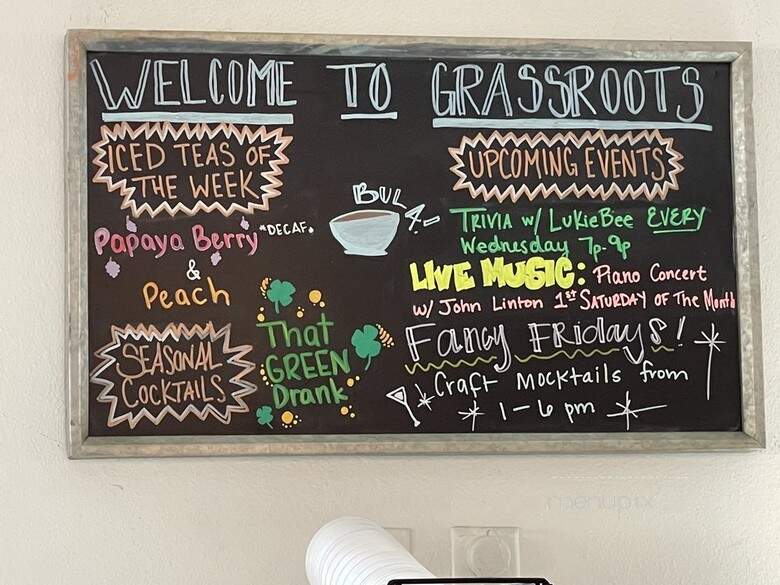 WELCOME TO GRASSROOTS
ICED TEAS OF
THE WEEK
Papaya Berry *DECAF*
&
Peach
SEASONAL
COCKTAILS
That
GREEN
Drank
BULA~
UPCOMING EVENTS
TRIVIA w/ LukieBee EVERY
Wednesday 7p-9p
LIVE MUSIC: Piano Concert
w/ John Linton 1st SATURDAY OF The Month
Fancy FRIdayS!
Craft Mocktails from
1-6 pm
menupix